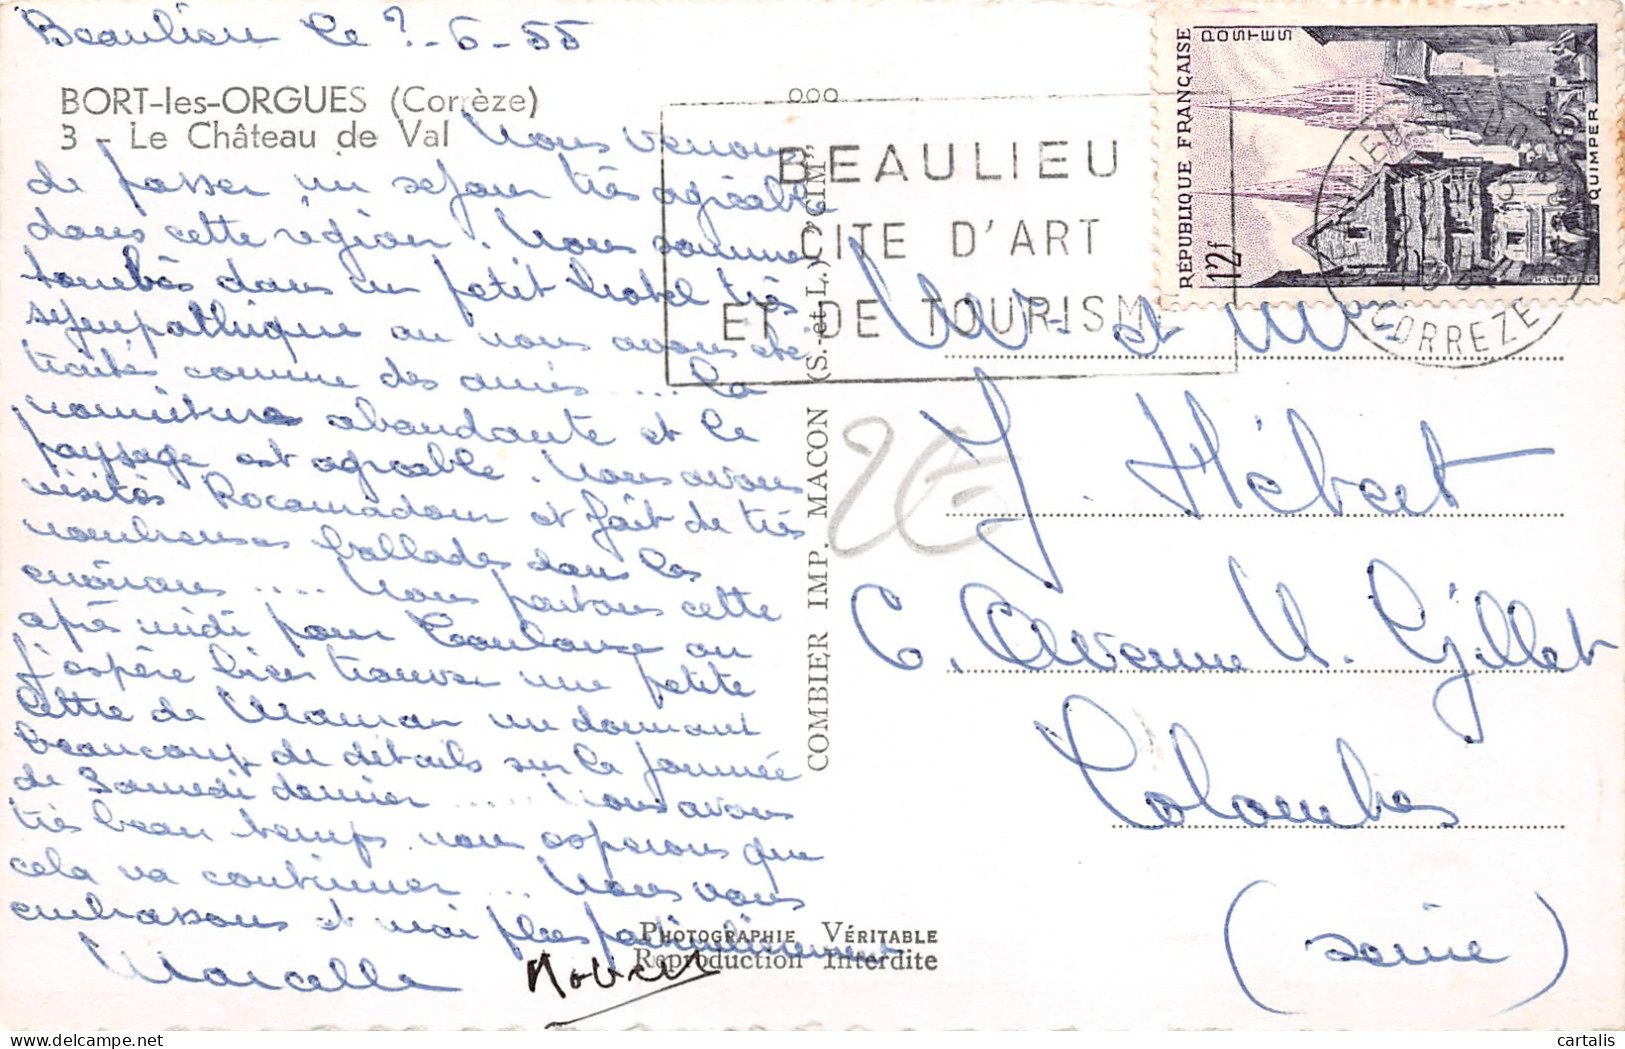 Beaulieu le ?-6-55
BORT-les-ORGUES (Corrèze)
3 - Le Château de Val
Nous venons
de passer un séjour très agréable
dans cette région. Nous sommes
tombés dans un petit hotel très
sympathique ou nous avons été
traités comme des amis .... La
nourriture abondante et le
paysage est agréable. Nous avons
visités Rocamadour et fait de très
nombreuses ballades dans les
environs .... Nous partons cette
après midi pour Toulouse ou
j'espère bien trouver une petite
lettre de Maman me donnant
beaucoup de détails sur la journée
de Samedi dernier ..... Nous avons
très beau temps, nous esperons que
cela va continuer ... Nous vous
embrassons et moi plus particulièrement
Marcelle
COMBIER IMP. MACON (S.-et-L.) "CIM"
PHOTOGRAPHIE VÉRITABLE
Reproduction Interdite
BEAULIEU
CITE D'ART
ET DE TOURISME
RÉPUBLIQUE FRANÇAISE
POSTES
12f
QUIMPER
CORREZE
2€
Mr et Mme
J. Hébert
6. Avenue H. Gillet
Colombes
(Seine)
cartalis